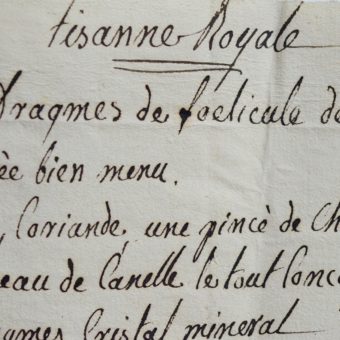 tisanne Royale
Dragmes de foelicule de
ée bien menu.
Coriande, une pincè de Ch
eau de Canelle le tout Conc
gmes Cristal mineral